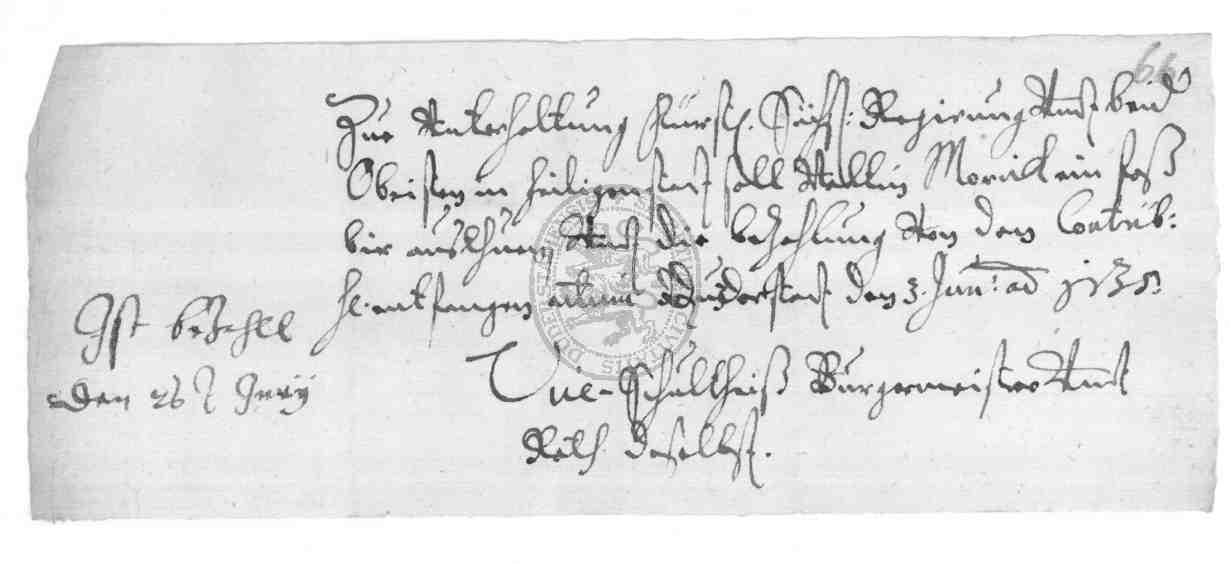 66
Zue Unterhaltung Fürstl. Sächss: Regierung Undt beide
Obristen in Heiligenstadt soll Wallin Morick ein faß
bir austhuen Undt die bezahlung Von den Contrib:
H. entfangen Duderstadt den 3. Jun: ao
Ist bezahlt
den 26 Juny
Vice-Schultheiß Burgermeister Undt
Rath daselbst.